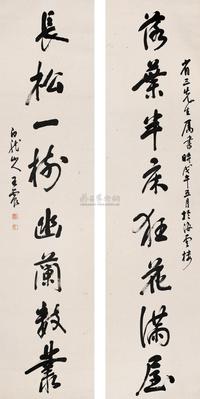 落葉半床狂花滿屋
省三先生属書時戊午五月於海雲樓
長松一樹幽蘭數叢
白龍山人王震